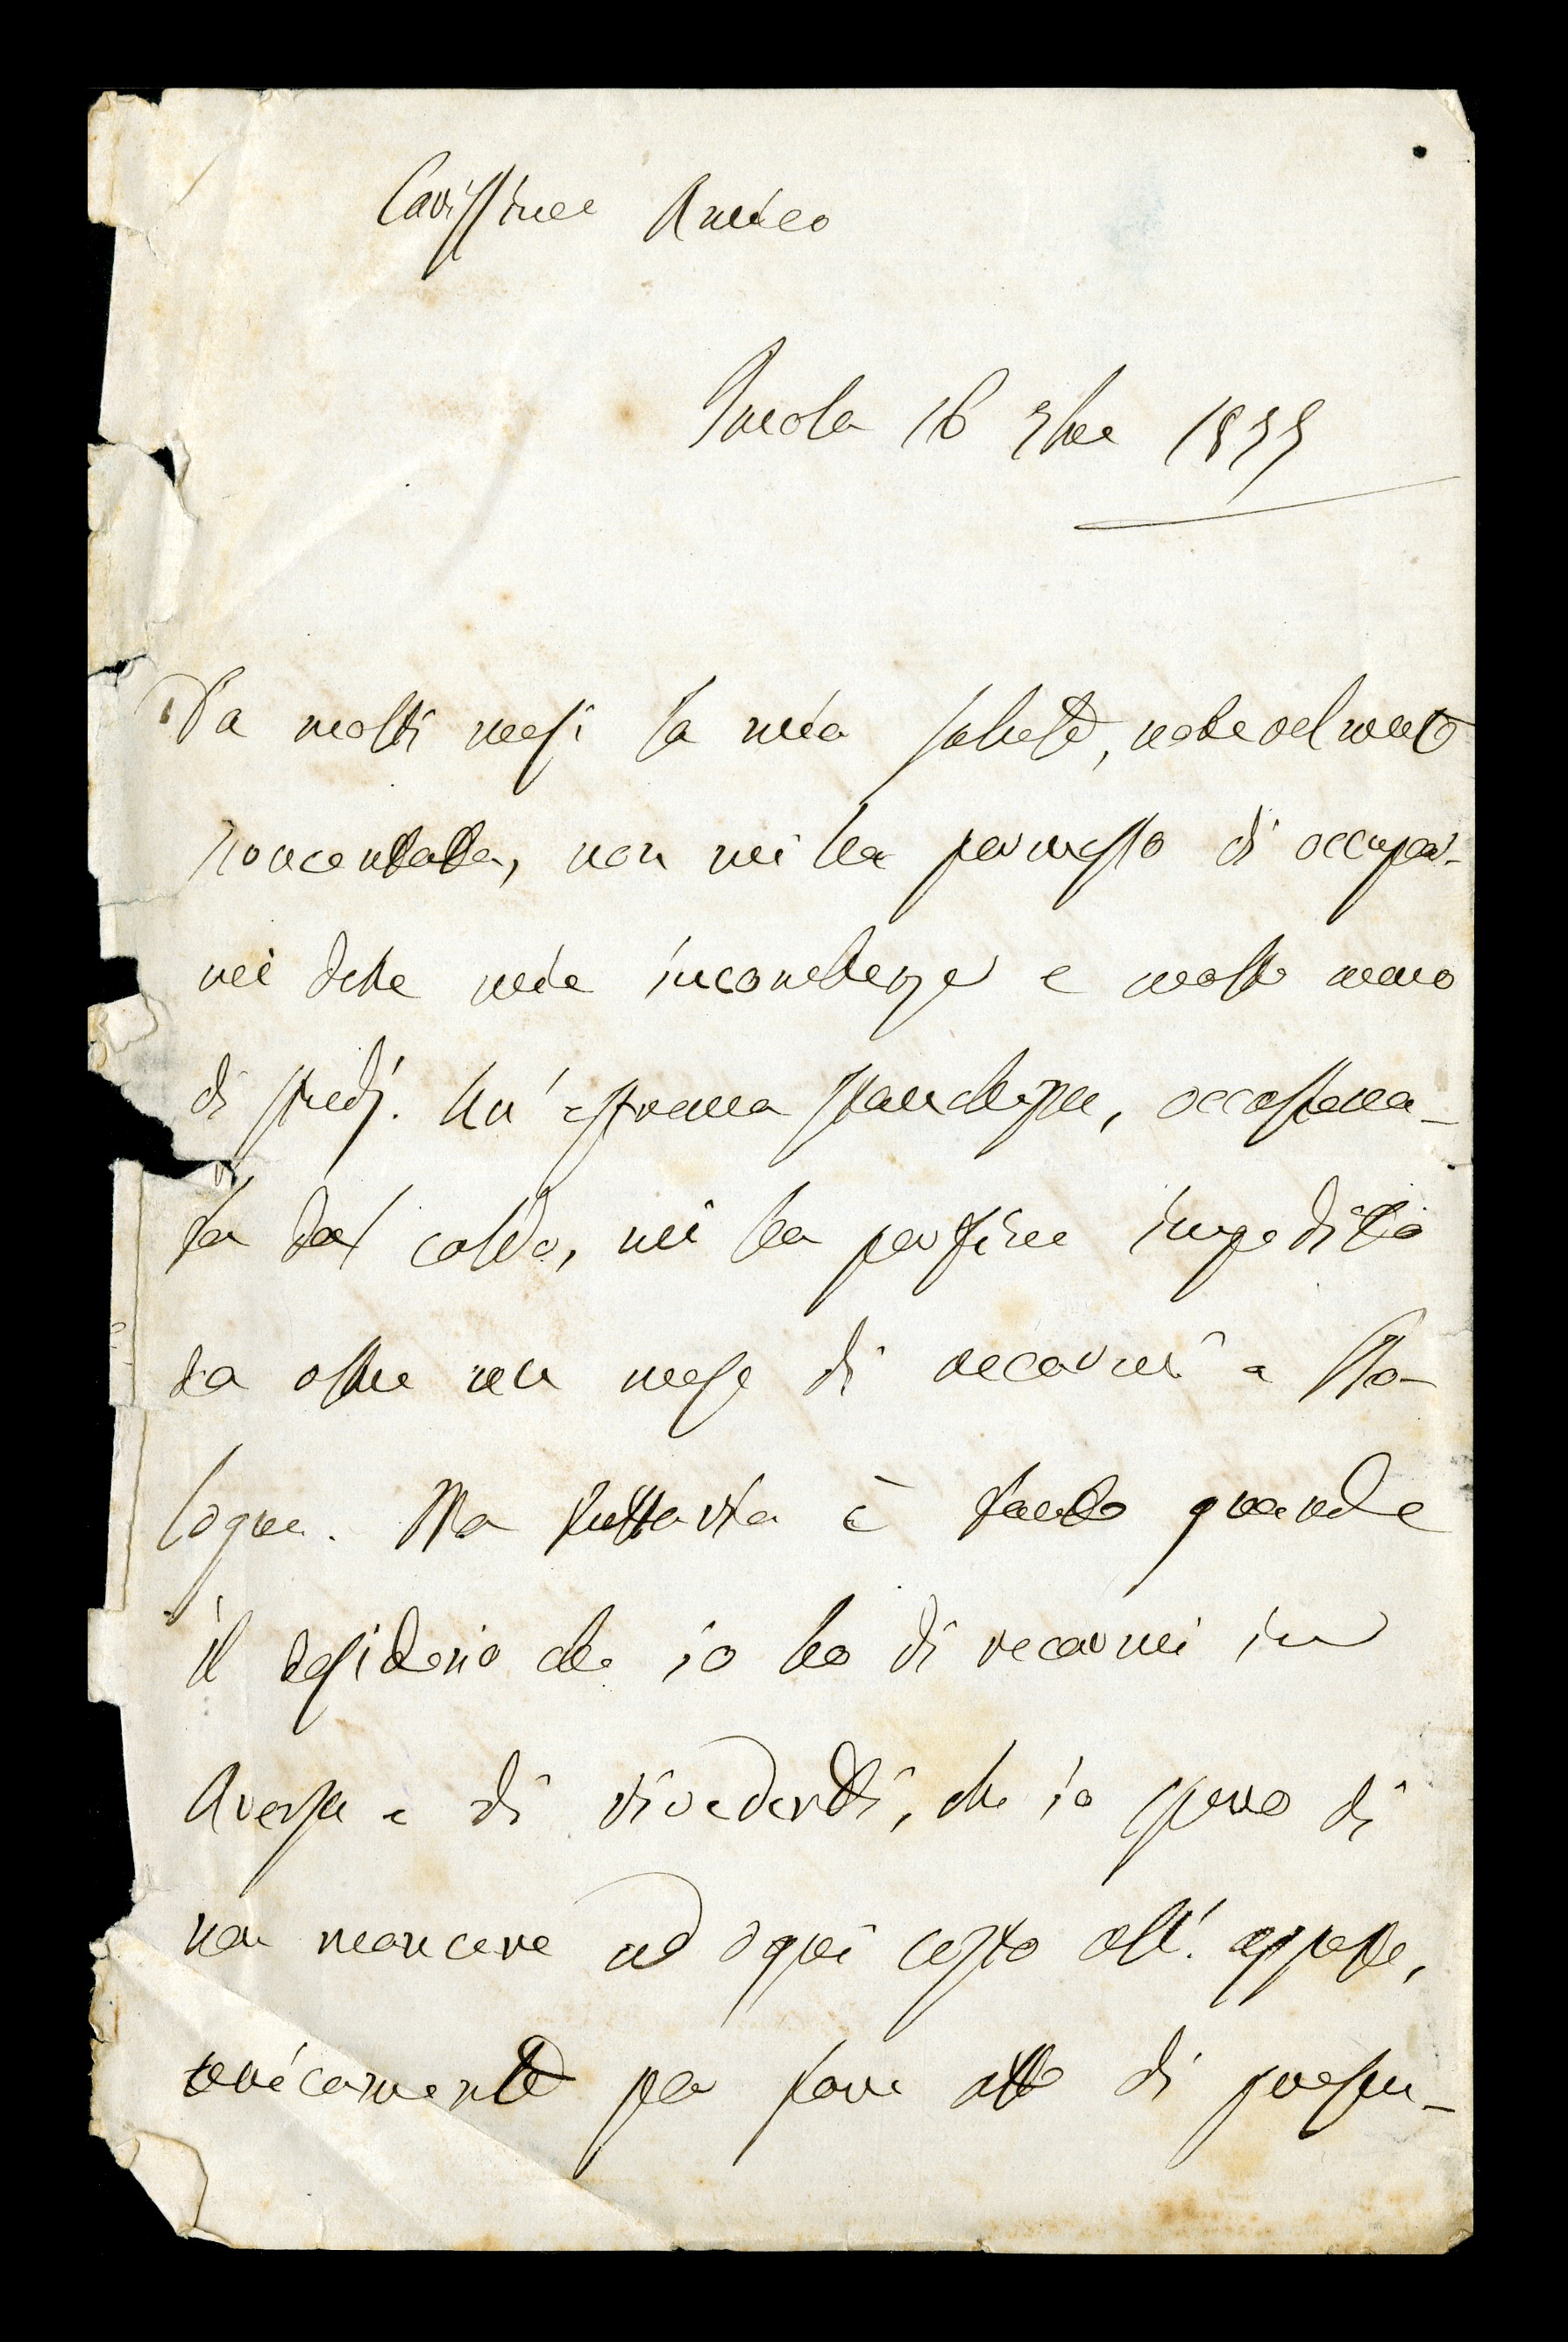 Carissimo Amico
Imola 16 7bre 1877
Da molti mesi la mia salute, notevolmente
sconcertata, non mi ha permesso di occupar-
mi delle mie incombenze e molto meno
di studj. Un' estrema stanchezza, occasiona-
ta dal caldo, mi ha perfino impedito
da oltre un mese di recarmi a Bo-
logna. Ma tuttavia è tanto grande
il desiderio che io ho di recarmi in
Aversa e di rivederti, che io spero di
non mancare ad ogni costo all' appello,
unicamente per fare atto di presen-